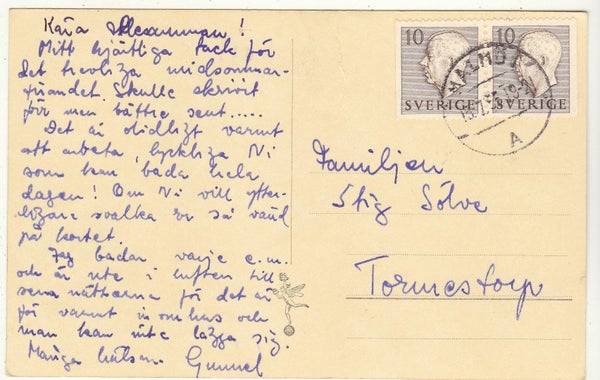 Kära
Mitt hjärtliga tack för
det trevliga midsommar-
firandet. Skulle skrivit
förr men bättre sent.....
Det är olidligt varmt
att arbeta, lyckliga Ni
som kan bada hela
dagen! Om Ni vill ytter-
ligare svalka Er så vänd
på kortet.
Jag badar varje e.m.
och är ute i luften till
sena nätterna för det är
för varmt inomhus och
man kan inte lägga sig.
Många hälsn. Gunnel
10 10
SVERIGE SVERIGE
MALMÖ
A
Familjen
Stig Sölve
Tormestorp